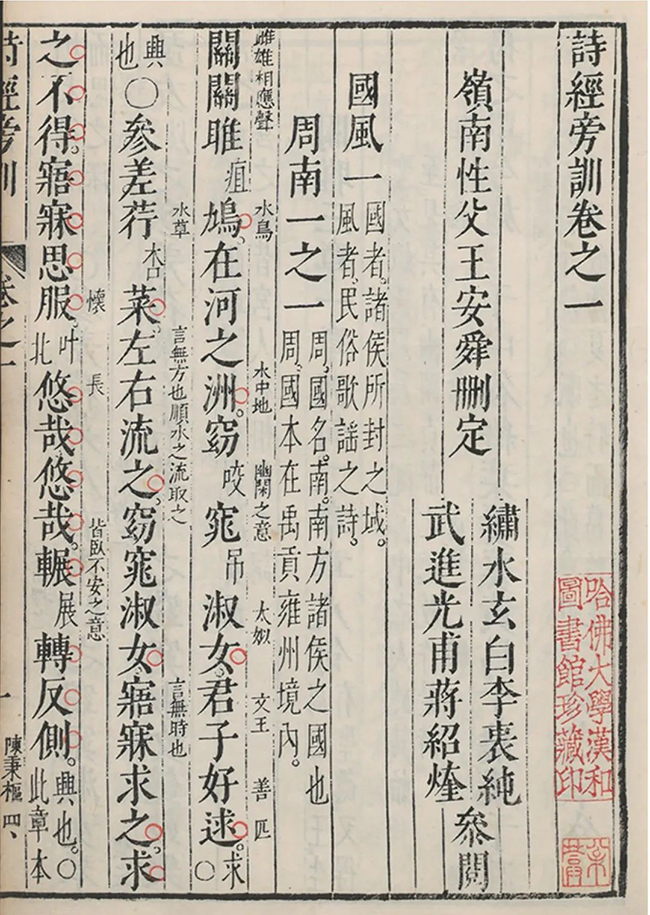 詩經旁訓卷之一
哈佛大學漢和圖書館珍藏印
嶺南性父王安舜刪定
繡水玄白李衷純
武進光甫蔣紹煃
叅閱
國風一
國者。諸侯所封之域。
風者。民俗歌謠之詩。
周南一之一
周。國名。南。南方諸侯之國也
周。國本在禹貢雍州境内。
雌雄相應聲 水鳥 水中地 幽閑之意 太姒 文王 善 匹
關關雎疽鳩。在河之洲。窈咬窕吊淑女。君子好逑。求○
水草 言無方也順水之流取之 言無時也
興也○參差荇木口菜。左右流之。窈窕淑女。寤寐求之。求
懷 長 皆臥不安之意
之不得。寤寐思服。叶北悠哉悠哉。輾展轉反側。興也。○此章本
詩經旁訓 卷之一 一 陳秉樞 四、